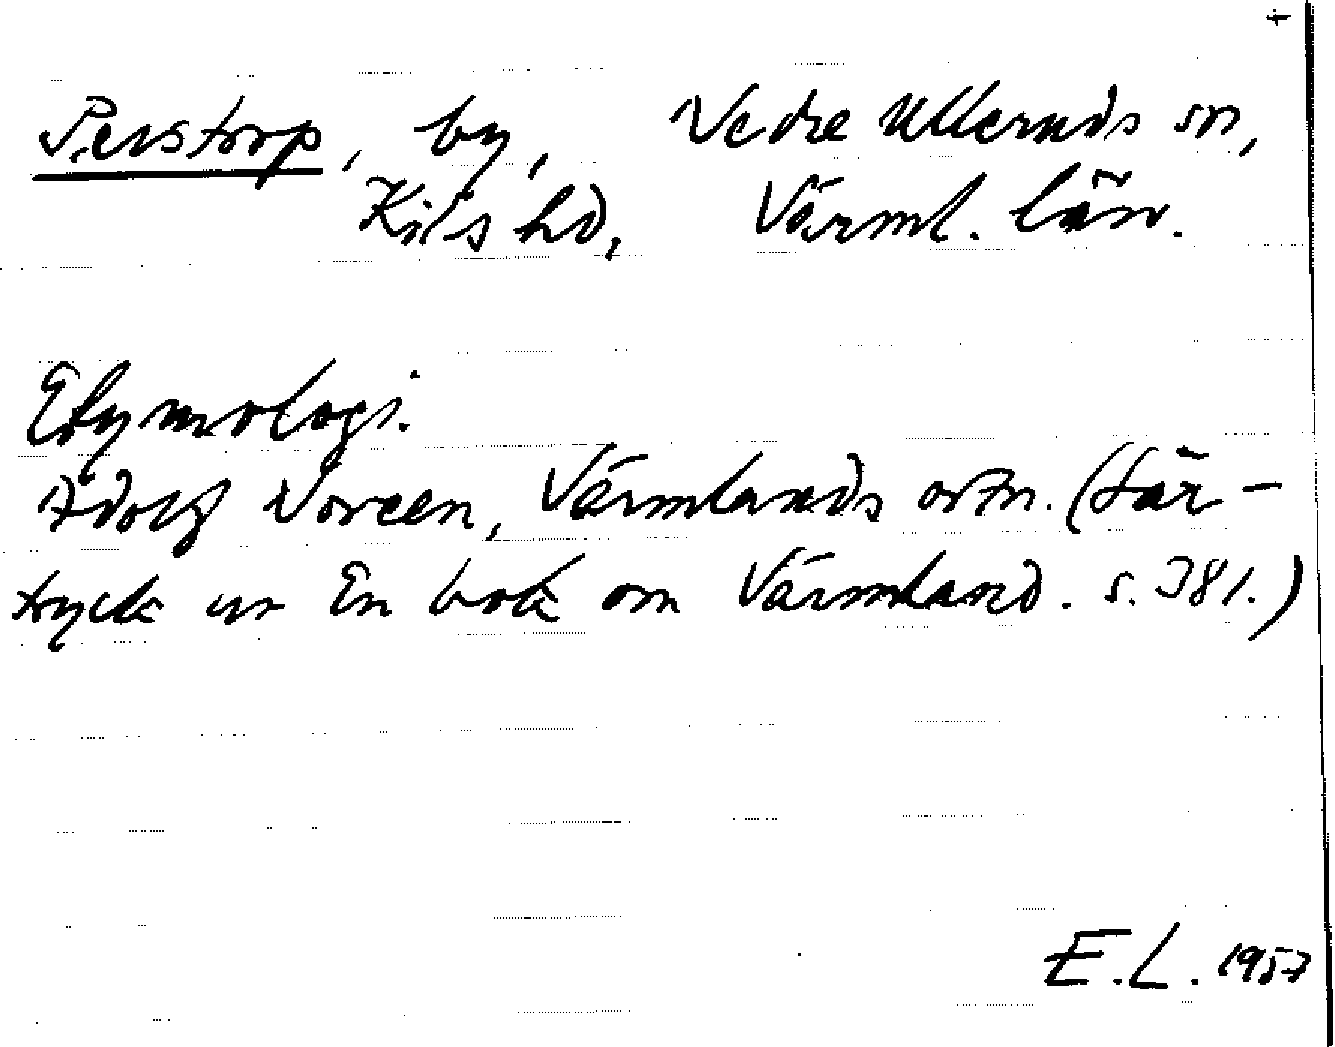 Perstorp, by, Nedre Ulleruds sn,
Kils hd, Värml. län.
Etymologi.
Adolf Noreen, Värmlands ortn. (Sär-
tryck ur En bok om Värmland. s. 381.)
E.L. 1957